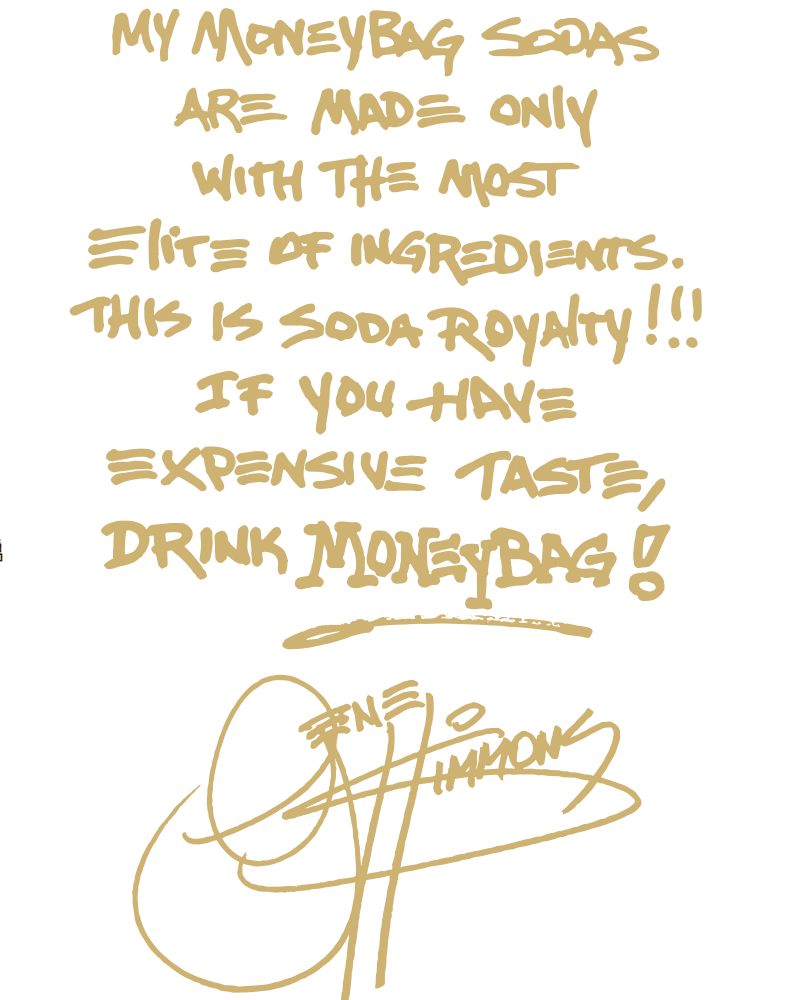 MY MONEYBAG SODAS
ARE MADE ONLY
WITH THE MOST
ElitE OF INGREDIENTS.
THIS IS SODA ROYAlTY!!!
IF YOU HAVE
EXPENSIVE TASTE,
DRINK MONEYBAG!
GENE SIMMONS